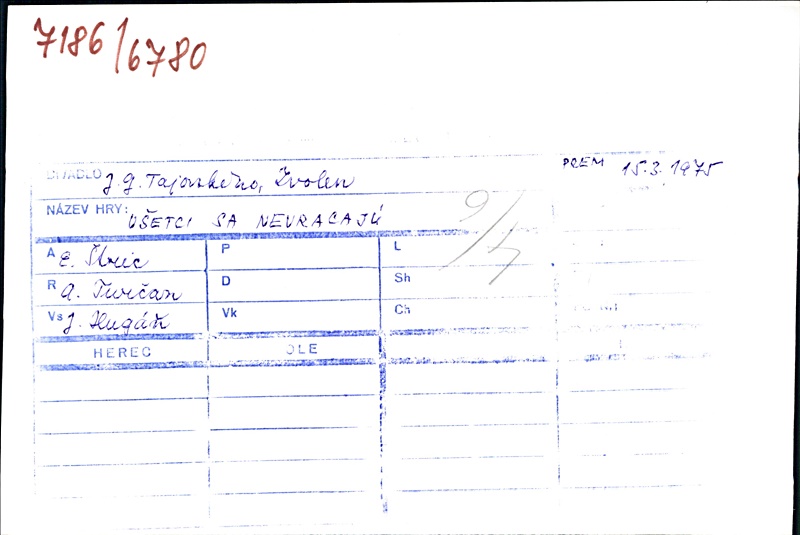 7186/6780
DIVADLO J. G. Tajovského, Zvolen
PREM 15.3.1975
NÁZEV HRY: VŠETCI SA NEVRACAJÚ
A E. Štric P L
R A. Turčan D Sh
Vs J. Hugáň Vk Ch
HEREC OLE